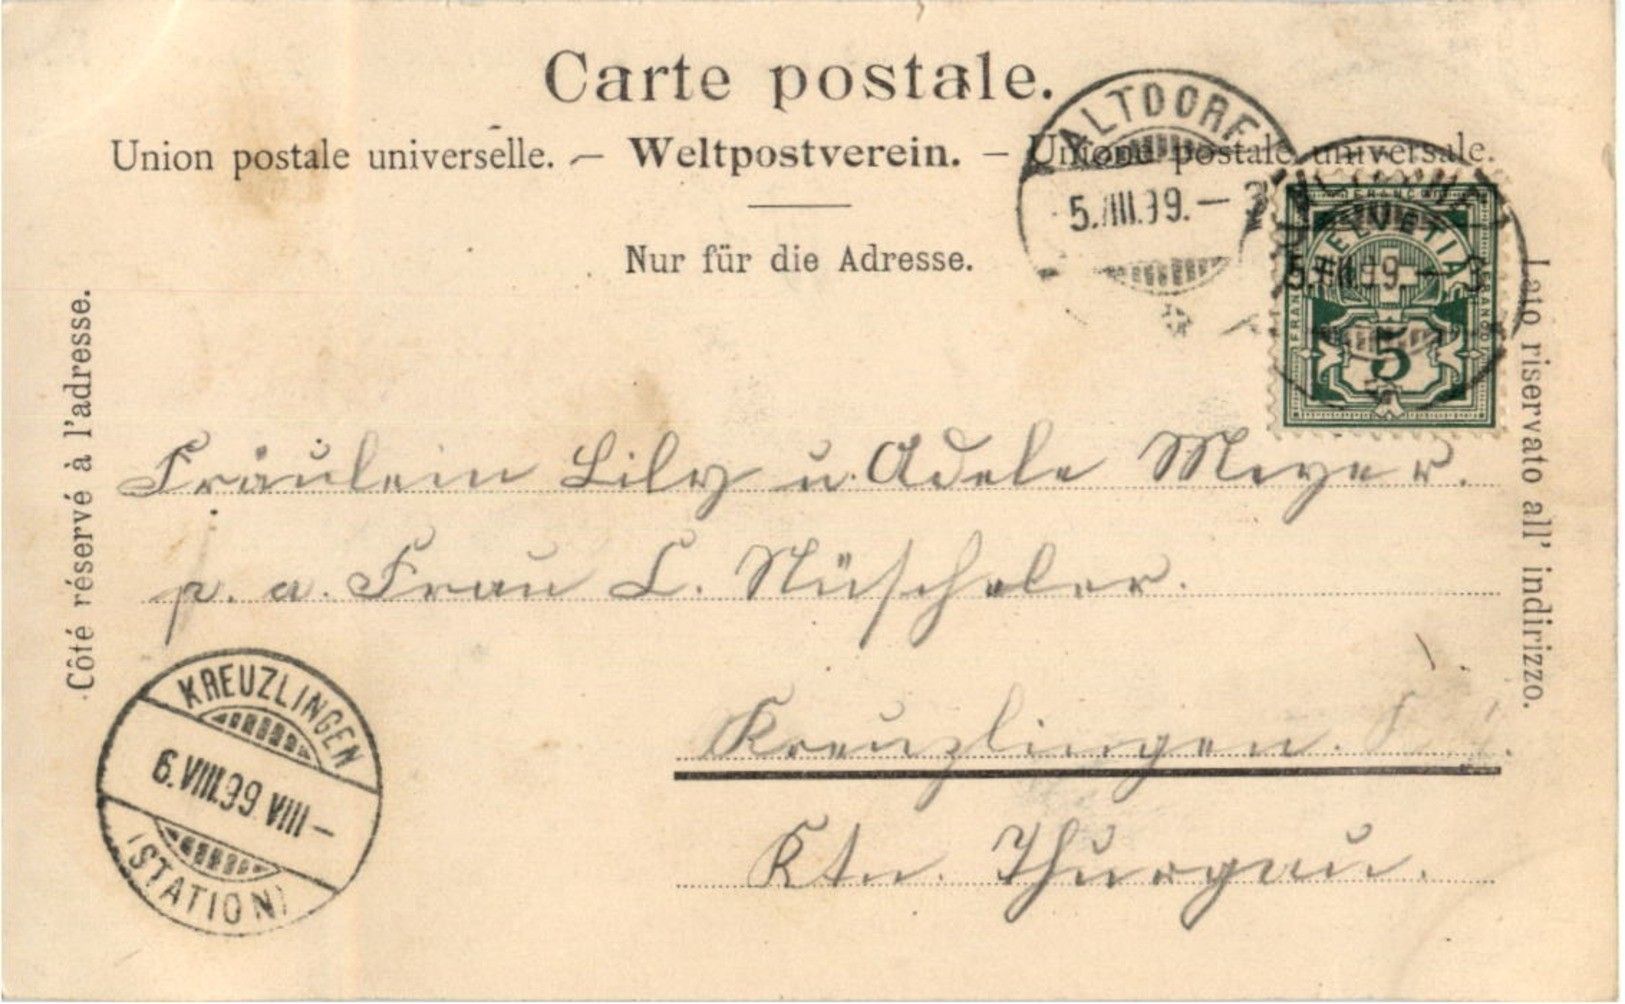 Carte postale.
Union postale universelle. — Weltpostverein. — Unione postale universale.
Nur für die Adresse.
Côté réservé à l'adresse.
Lato riservato all' indirizzo.
ALTDORF
5.VIII.99.—
FRANCO
HELVETIA
FRANCO
FRANCO
5
5.VIII.99.—
Fräulein Lily u. Adele Meyer.
p. a. Frau L. Nüscheler.
Kreuzlingen.
Ktn. Thurgau.
KREUZLINGEN
6.VIII.99 VIII—
(STATION)